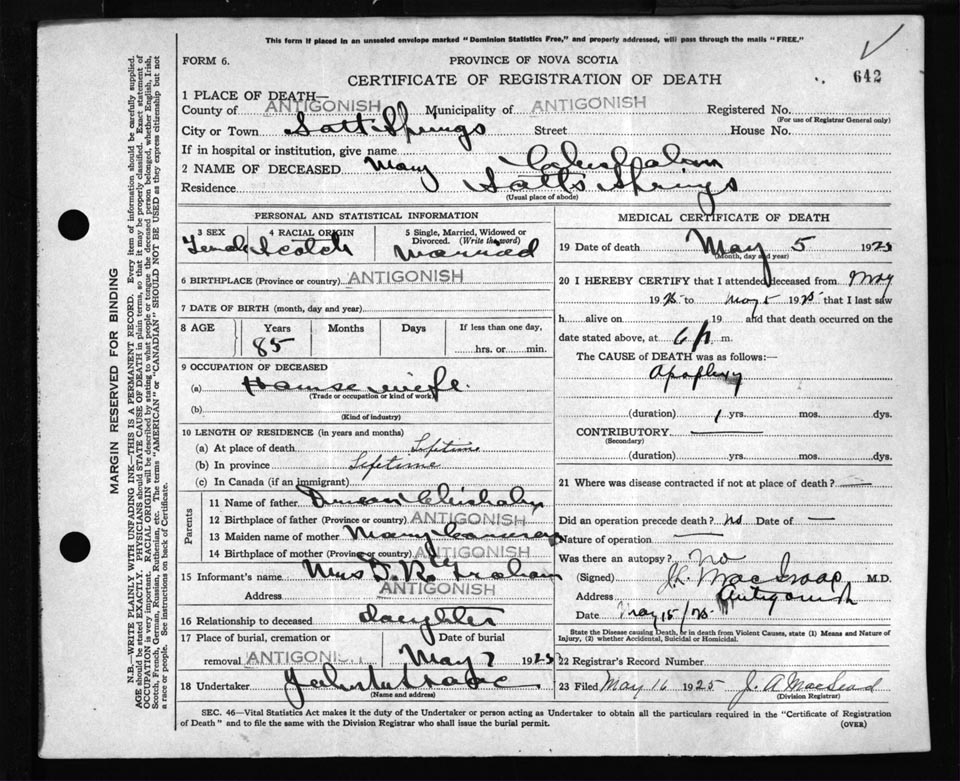 This form if placed in an unsealed envelope marked "Dominion Statistics Free," and properly addressed, will pass through the mails "FREE."
FORM 6.
PROVINCE OF NOVA SCOTIA
CERTIFICATE OF REGISTRATION OF DEATH
642
1 PLACE OF DEATH—
County of ANTIGONISH Municipality of ANTIGONISH Registered No.
(For use of Registrar General only)
City or Town Salt Springs Street House No.
If in hospital or institution, give name
2 NAME OF DECEASED Mary Chisholm
Residence Salts Springs
(Usual place of abode)
PERSONAL AND STATISTICAL INFORMATION
3 SEX 4 RACIAL ORIGIN 5 Single, Married, Widowed or Divorced. (Write the word)
Female Scotch Married
6 BIRTHPLACE (Province or country) ANTIGONISH
7 DATE OF BIRTH (month, day and year)
8 AGE Years Months Days If less than one day,
85 hrs. or min.
9 OCCUPATION OF DECEASED
(a) House wife
(Trade or occupation or kind of work)
(b)
(Kind of industry)
10 LENGTH OF RESIDENCE (in years and months)
(a) At place of death Lifetime
(b) In province Lifetime
(c) In Canada (if an immigrant)
Parents
11 Name of father Duncan Chisholm
12 Birthplace of father (Province or country) ANTIGONISH
13 Maiden name of mother Mary Cameron
14 Birthplace of mother (Province or country) ANTIGONISH
15 Informant's name Mrs D. R. Graham
Address ANTIGONISH
16 Relationship to deceased daughter
17 Place of burial, cremation or Date of burial
removal ANTIGONISH May 7 1925
18 Undertaker
(Name and address)
MEDICAL CERTIFICATE OF DEATH
19 Date of death May 5 1925
(Month, day and year)
20 I HEREBY CERTIFY that I attended deceased from May
1925 to May 5 1925 that I last saw
h alive on 19 and that death occurred on the
date stated above, at 6 p. m.
The CAUSE of DEATH was as follows:—
Apoplexy
(duration) 1 yrs. mos. dys.
CONTRIBUTORY —
(Secondary)
(duration) yrs. mos. dys.
21 Where was disease contracted if not at place of death? —
Did an operation precede death? No Date of —
Nature of operation —
Was there an autopsy? No
(Signed) J. L. MacIsaac M.D.
Address Antigonish
Date May 15/25
State the Disease causing Death, or in death from Violent Causes, state (1) Means and Nature of
Injury, (2) whether Accidental, Suicidal or Homicidal.
22 Registrar's Record Number
23 Filed May 16 1925 J. A. MacLeod
(Division Registrar)
SEC. 46—Vital Statistics Act makes it the duty of the Undertaker or person acting as Undertaker to obtain all the particulars required in the "Certificate of Registration
of Death" and to file the same with the Division Registrar who shall issue the burial permit.
(OVER)
MARGIN RESERVED FOR BINDING
N.B.—WRITE PLAINLY WITH UNFADING INK—THIS IS A PERMANENT RECORD. Every item of information should be carefully supplied.
AGE should be stated EXACTLY. PHYSICIANS should STATE CAUSE OF DEATH in plain terms, so that it may be properly classified. Exact statement of
OCCUPATION is very important. RACIAL ORIGIN will be described by stating to what people or tongue the deceased person belonged, whether English, Irish,
Scotch, French, German, Russian, Ruthenian, etc. The terms "AMERICAN" or "CANADIAN" SHOULD NOT BE USED as they express citizenship but not
a race or people. See instructions on back of Certificate.